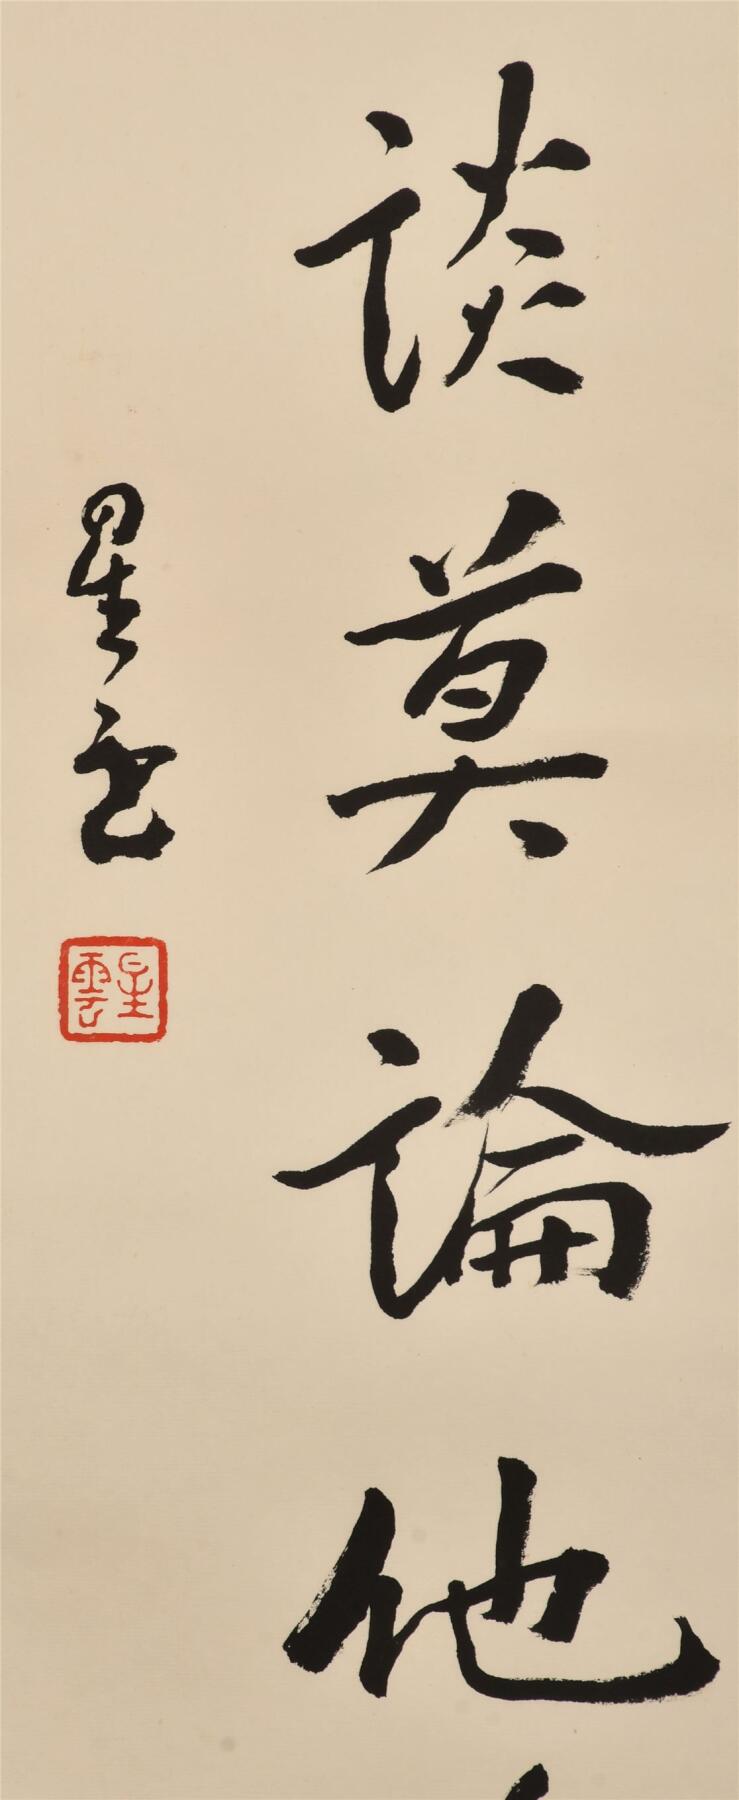 談莫論他
星雲
星雲